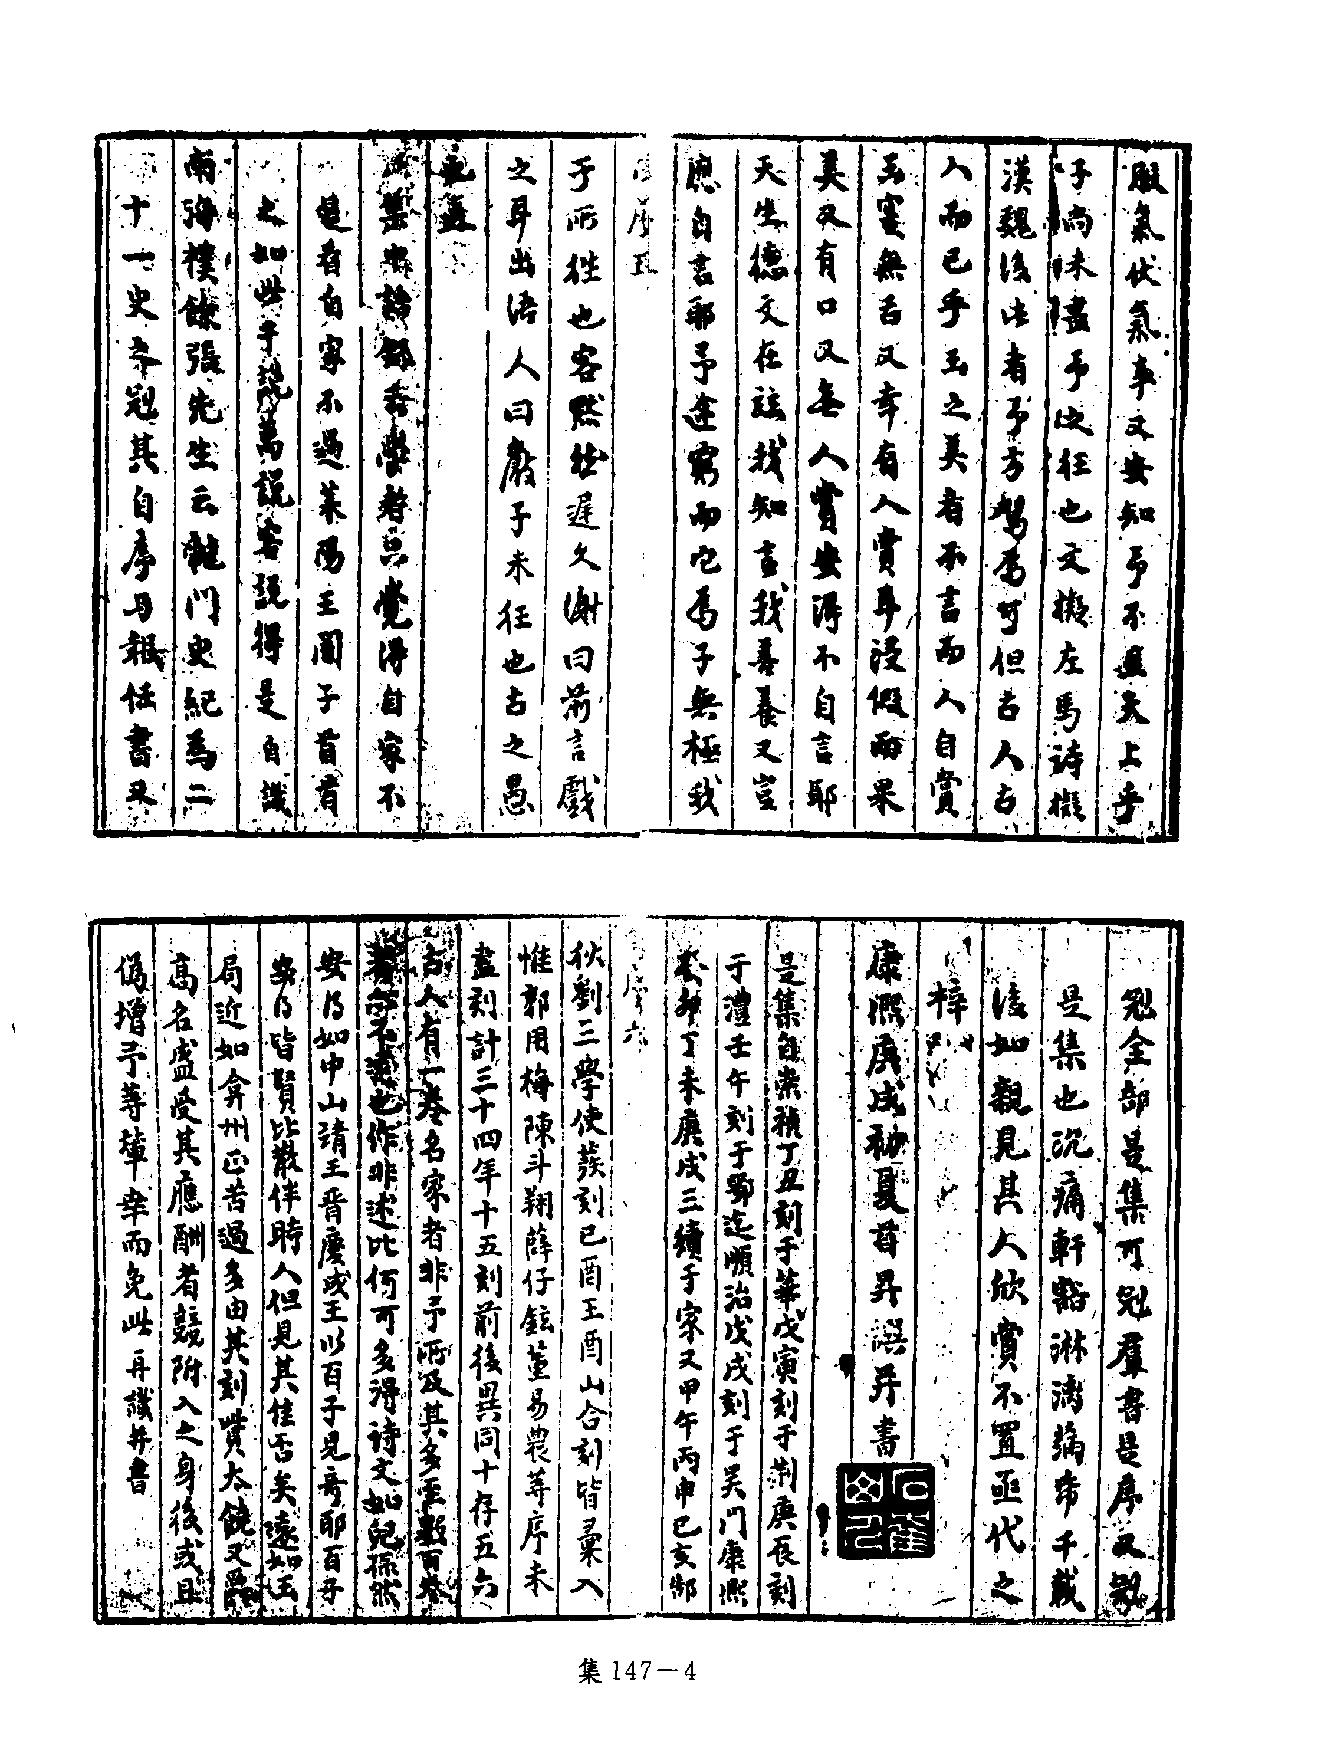 服氣伏氣事又安知予不與天上乎
子尚未盡予之狂也文擬左馬詩擬
漢魏後此者予方駕焉可但古人古
人而已乎玉之美者不言而人自賞
玉塞無舌又幸有人賞耳浸假而果
美又有口又無人賞安得不自言耶
天生德文在茲我知言我善養又豈
應自言耶予途窮而它焉予無極我
序五
予所狂也客默然遲久謝曰前言戲
之耳出語人曰嚴子未狂也古之愚
也直
集中語錄吾學者只覺得自家不
是看自家不過萊陽王圖子首肯
之如此千說萬說客說得是自識
南海樸餘張先生云龍門史紀為二
十一史之冠其自序與報任書又
冠全部是集可冠羣書是序又冠
是集也沉痛軒豁淋漓編帝千載
後如親見其人欣賞不置亟代之
梓
康熙庚戌初夏首昇譔并書
是集自崇禎丁丑刻于華戊寅刻于荆庚辰刻
于澧壬午刻于鄂迄順治戊戌刻于吳門康熙
癸卯丁未庚戌三續于家又甲午丙申己亥郜
序六
狄劉三學使蔟刻己酉王酉山合刻皆彙入
惟郭用梅陳斗翔薛仔鉉董易農等序未
盡刻計三十四年十五刻前後異同十存五六
古人有一卷名家者非予所及其多至數百卷
者予不述也作非述比何可多得詩文如兒孫然
安得如中山靖王晉慶成王以百子見奇耶百子
安得皆賢比散伴時人但見其佳否矣遠如王
局近如弇州正苦過多由其刻貲太饒又爵
高名盛受其應酬者競附入之身後或且
偽增予等葦幸而免此再識并書
集 147－4